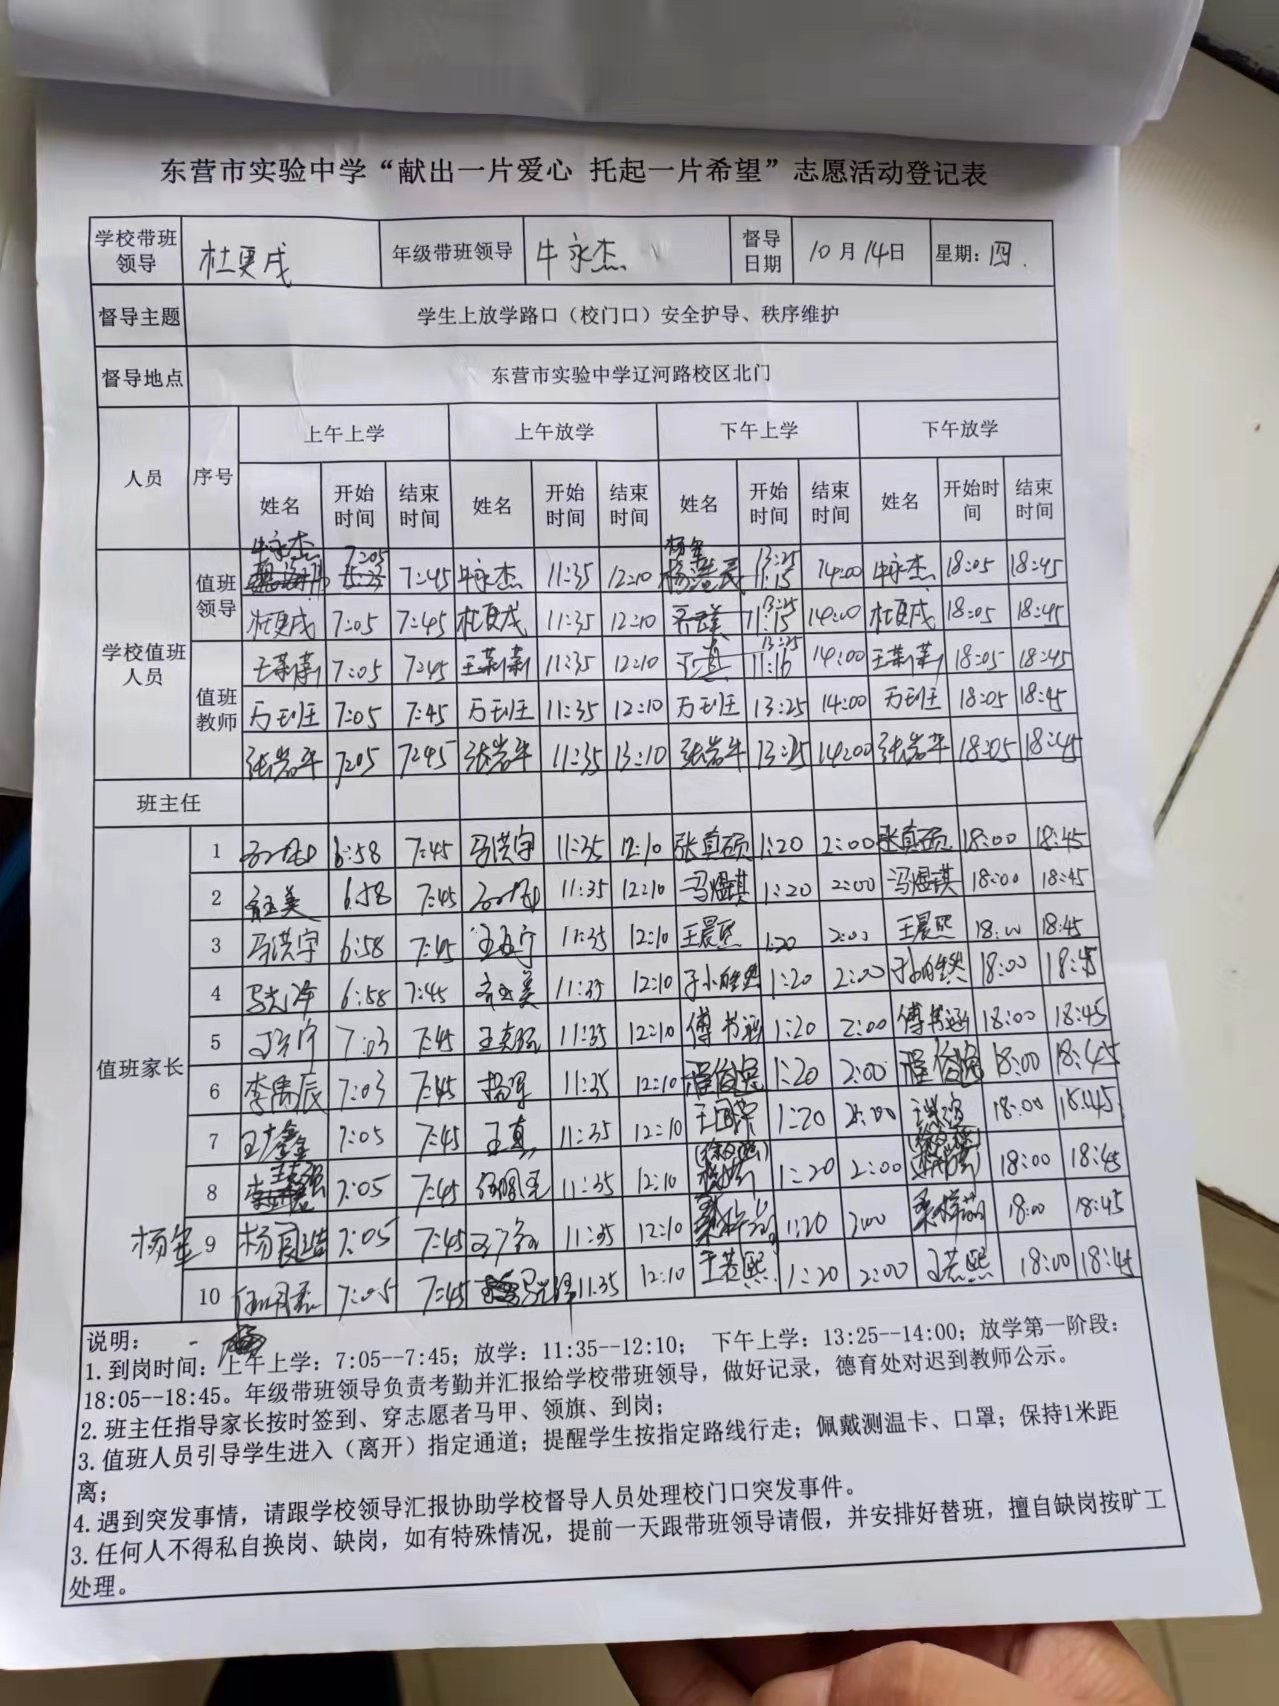 东营市实验中学“献出一片爱心 托起一片希望”志愿活动登记表
学校带班领导 杜更戌 年级带班领导 牛永杰 督导日期 10月14日 星期：四.
督导主题 学生上放学路口（校门口）安全护导、秩序维护
督导地点 东营市实验中学辽河路校区北门
人员 序号 上午上学 上午放学 下午上学 下午放学
姓名 开始时间 结束时间 姓名 开始时间 结束时间 姓名 开始时间 结束时间 姓名 开始时间 结束时间
学校值班人员
值班领导 牛永杰 7:05 7:45 牛永杰 11:35 12:10 13:25 11:15 14:00 牛永杰 18:05 18:45
杜更戌 7:05 7:45 杜更戌 11:35 12:10 13:25 11:15 14:00 杜更戌 18:05 18:45
值班教师 7:05 7:45 11:35 12:10 13:25 11:16 14:00 18:05 18:45
7:05 7:45 11:35 12:10 13:25 14:00 18:05 18:45
张岩平 7:05 7:45 张岩平 11:35 13:10 张岩平 13:25 14:00 张岩平 18:05 18:45
班主任
值班家长
1 6:58 7:45 马洪宇 11:35 12:10 张真硕 1:20 2:00 张真硕 18:00 18:45
2 6:58 7:45 11:35 12:10 冯煜琪 1:20 2:00 冯煜琪 18:00 18:45
3 马洪宇 6:58 7:45 11:35 12:10 王晨熙 1:20 2:00 王晨熙 18:00 18:45
4 6:58 7:45 11:35 12:10 1:20 2:00 18:00 18:45
5 7:03 7:45 11:35 12:10 傅书涵 1:20 2:00 傅书涵 18:00 18:45
6 李禹辰 7:03 7:45 11:35 12:10 1:20 2:00 18:00 18:45
7 7:05 7:45 王真 11:35 12:10 1:20 2:00 18:00 18:45
8 7:05 7:45 11:35 12:10 1:20 2:00 18:00 18:45
9 7:05 7:45 11:35 12:10 1:20 2:00 18:00 18:45
10 7:05 7:45 11:35 12:10 王若熙 1:20 2:00 王若熙 18:00 18:45
说明：
1.到岗时间：上午上学：7:05--7:45；放学：11:35--12:10； 下午上学：13:25--14:00；放学第一阶段：
18:05--18:45。年级带班领导负责考勤并汇报给学校带班领导，做好记录，德育处对迟到教师公示。
2.班主任指导家长按时签到、穿志愿者马甲、领旗、到岗；
3.值班人员引导学生进入（离开）指定通道；提醒学生按指定路线行走；佩戴测温卡、口罩；保持1米距
离；
4.遇到突发事情，请跟学校领导汇报协助学校督导人员处理校门口突发事件。
3.任何人不得私自换岗、缺岗，如有特殊情况，提前一天跟带班领导请假，并安排好替班，擅自缺岗按旷工
处理。